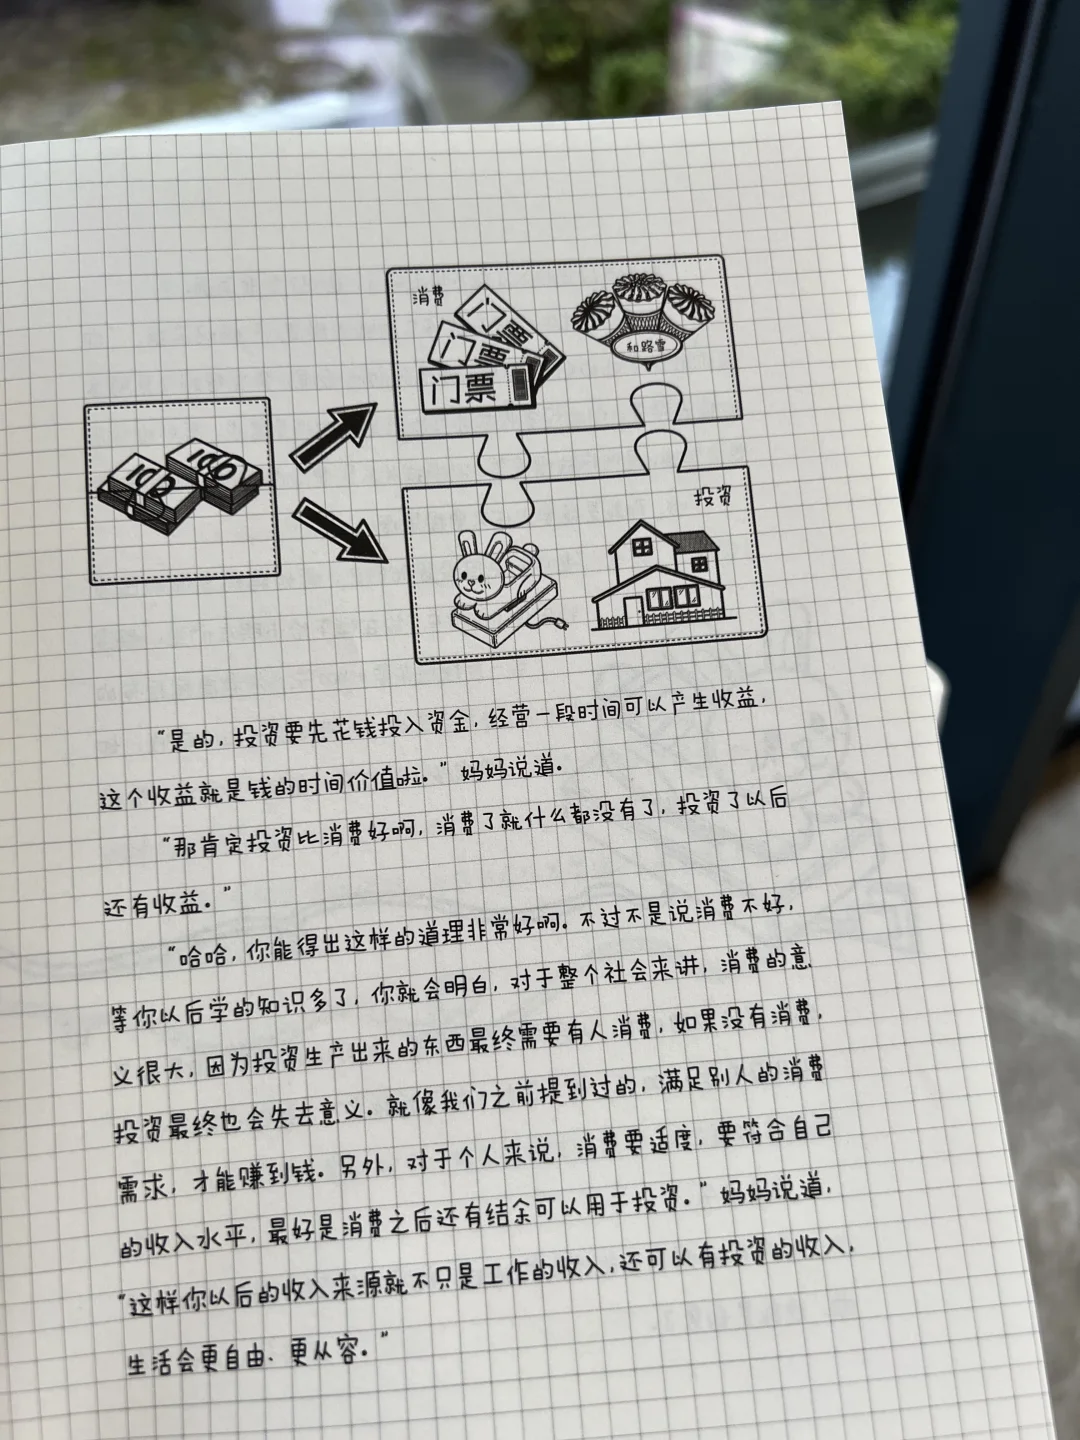 消费
门票
门票
门票
和路雪
100
100
投资
“是的，投资要先花钱投入资金，经营一段时间可以产生收益，
这个收益就是钱的时间价值啦。”妈妈说道。
“那肯定投资比消费好啊，消费了就什么都没有了，投资了以后
还有收益。”
“哈哈，你能得出这样的道理非常好啊。不过不是说消费不好，
等你以后学的知识多了，你就会明白，对于整个社会来讲，消费的意
义很大，因为投资生产出来的东西最终需要有人消费，如果没有消费，
投资最终也会失去意义。就像我们之前提到过的，满足别人的消费
需求，才能赚到钱。另外，对于个人来说，消费要适度，要符合自己
的收入水平，最好是消费之后还有结余可以用于投资。”妈妈说道，
“这样你以后的收入来源就不只是工作的收入，还可以有投资的收入，
生活会更自由、更从容。”